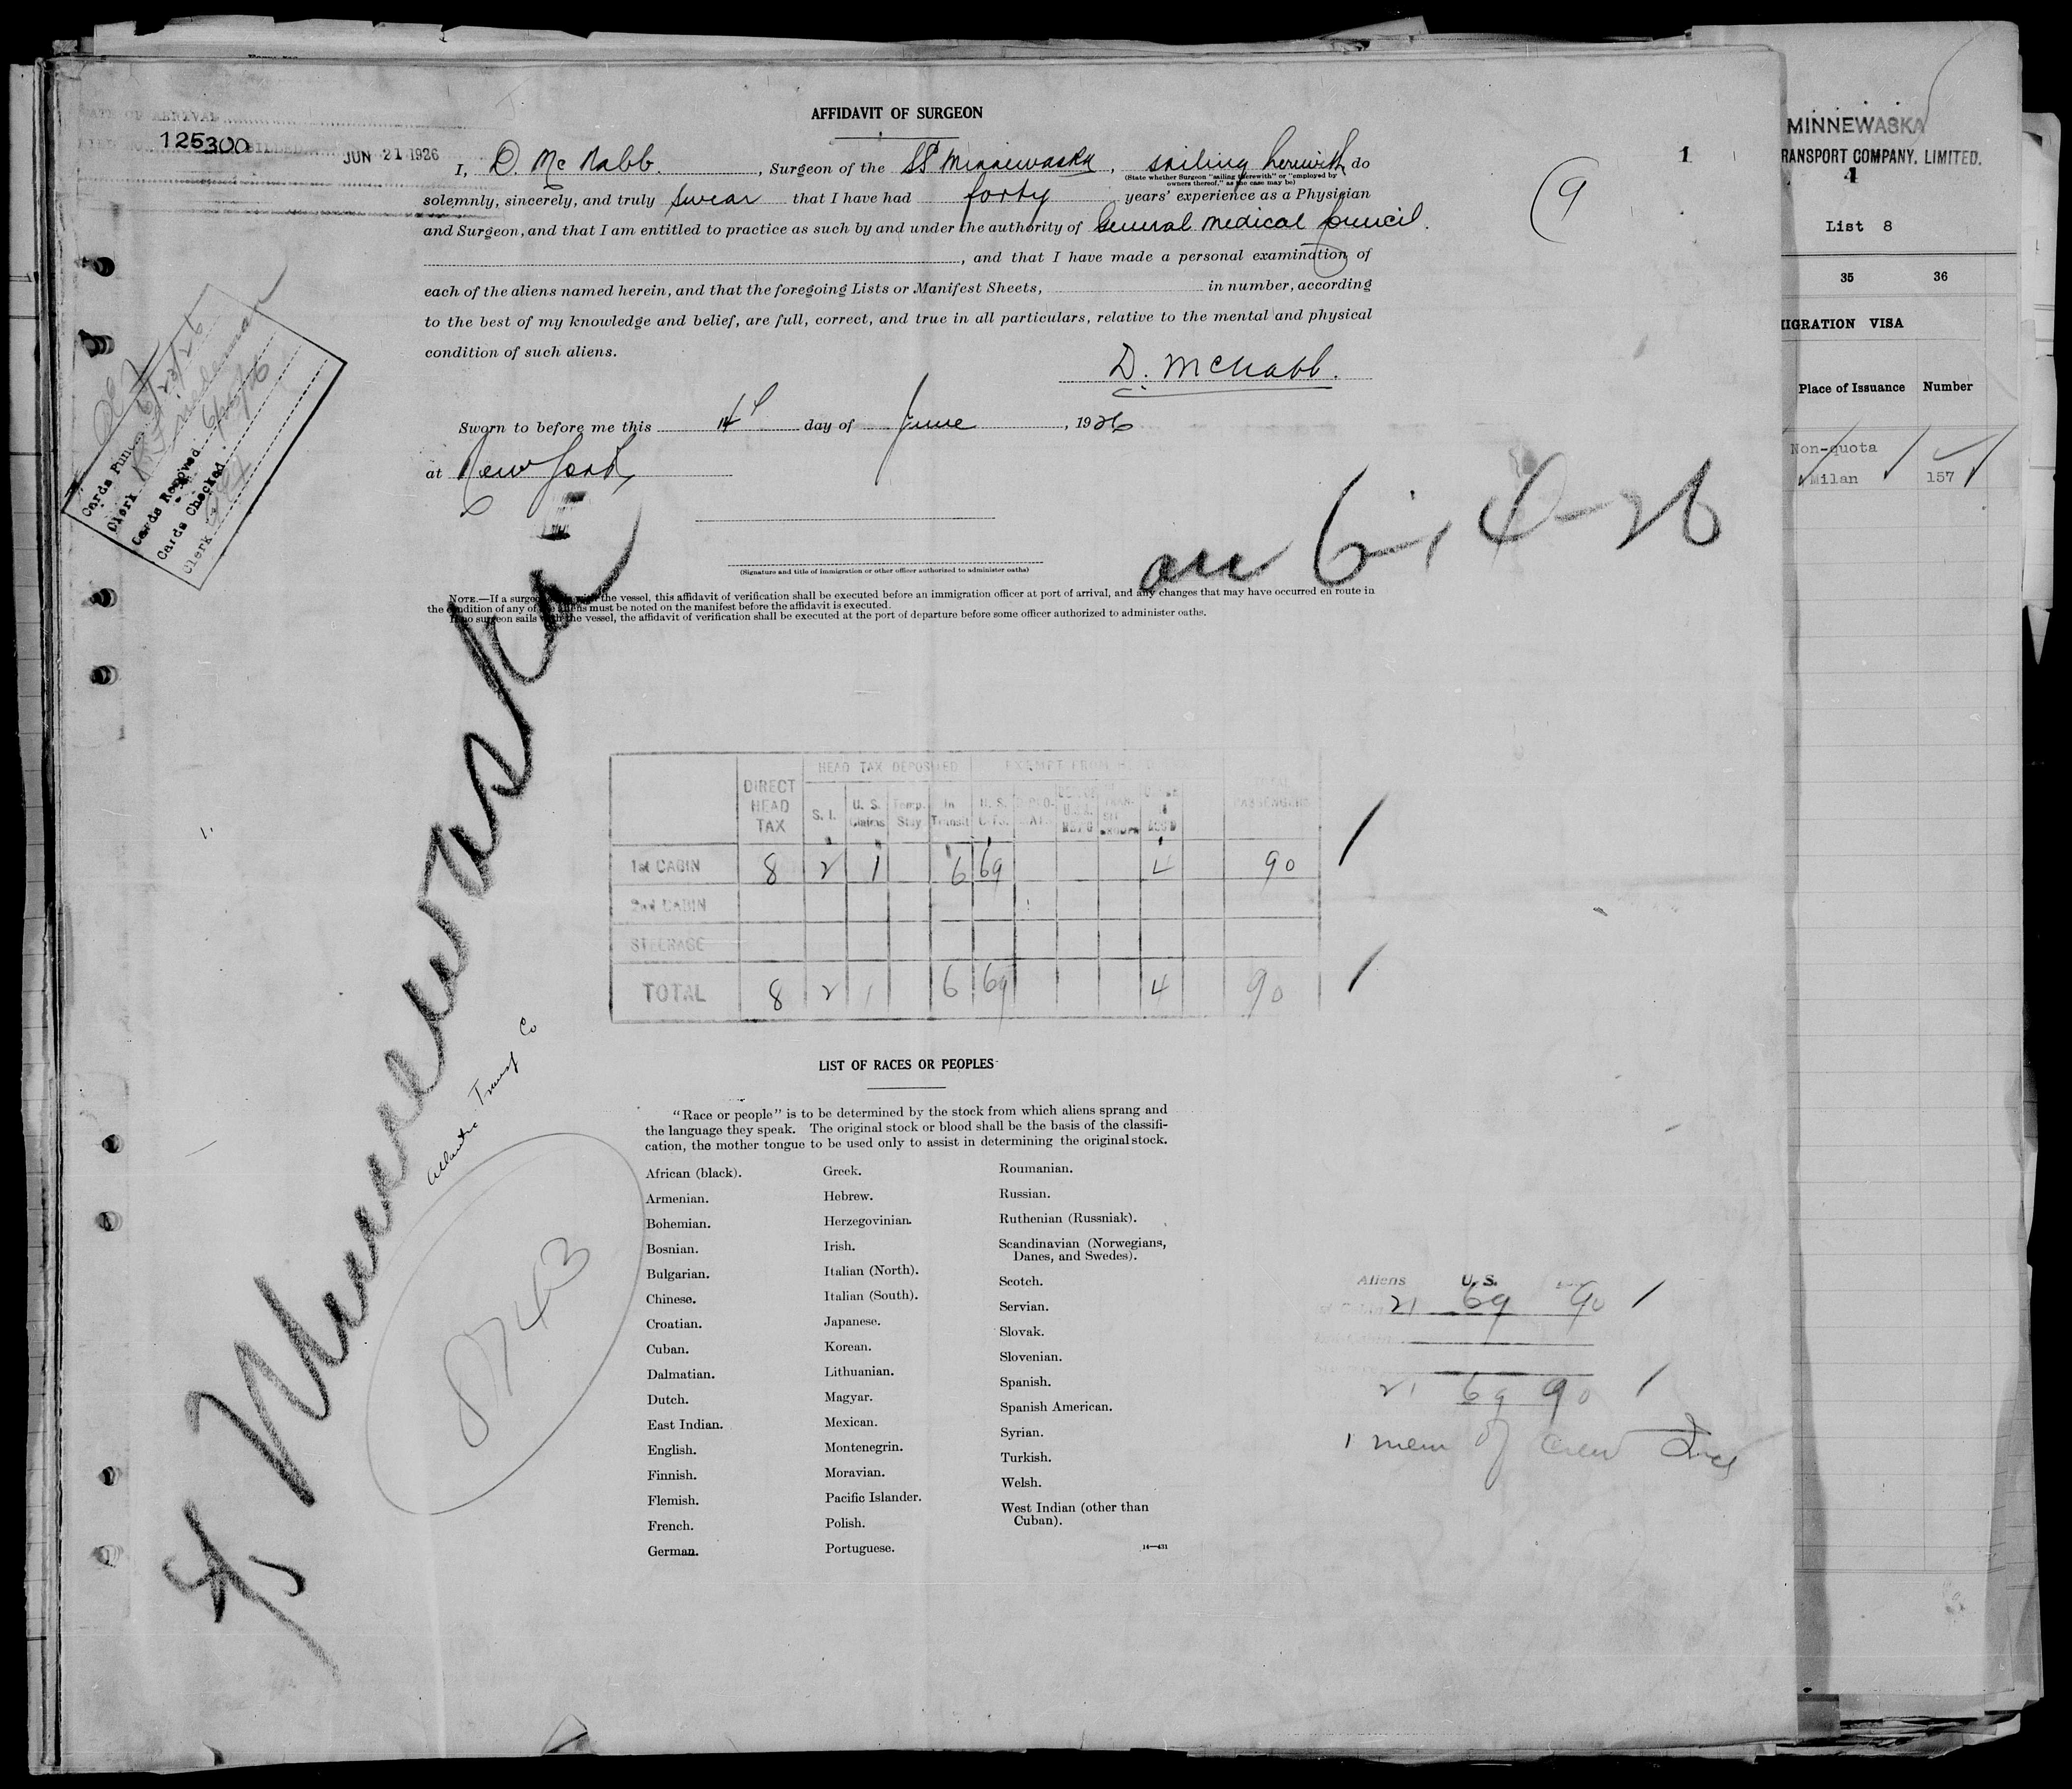 AFFIDAVIT OF SURGEON
DATE OF ARRIVAL
125300 BILLED JUN 21 1926
1
(9
I, D. McNabb. , Surgeon of the SS Minnewaska , sailing herewith, do
(State whether Surgeon "sailing therewith" or "employed by
owners thereof," as the case may be)
solemnly, sincerely, and truly swear that I have had forty years' experience as a Physician
and Surgeon, and that I am entitled to practice as such by and under the authority of General Medical Council.
, and that I have made a personal examination of
each of the aliens named herein, and that the foregoing Lists or Manifest Sheets, in number, according
to the best of my knowledge and belief, are full, correct, and true in all particulars, relative to the mental and physical
condition of such aliens.
D. McNabb.
Sworn to before me this 14th day of June , 1926
at New York
(Signature and title of immigration or other officer authorized to administer oaths)
arr 6-14-26
NOTE.—If a surgeon sails with the vessel, this affidavit of verification shall be executed before an immigration officer at port of arrival, and any changes that may have occurred en route in
the condition of any of the aliens must be noted on the manifest before the affidavit is executed.
If no surgeon sails with the vessel, the affidavit of verification shall be executed at the port of departure before some officer authorized to administer oaths.
Cards Punc. 6/23/26
Clerk
Cards Removed
Cards Checked
Clerk
S/S Minnewaska
Atlantic Transp Co
8743
HEAD TAX DEPOSITED EXEMPT FROM
DIRECT HEAD TAX S. I. U. S. Claims Temp. Stay In Transit U. S. CITS. TOTAL PASSENGERS
1st CABIN 8 2 1 6 69 4 90
2nd CABIN
STEERAGE
TOTAL 8 2 1 6 69 4 90
LIST OF RACES OR PEOPLES
"Race or people" is to be determined by the stock from which aliens sprang and
the language they speak. The original stock or blood shall be the basis of the classifi-
cation, the mother tongue to be used only to assist in determining the original stock.
African (black).
Armenian.
Bohemian.
Bosnian.
Bulgarian.
Chinese.
Croatian.
Cuban.
Dalmatian.
Dutch.
East Indian.
English.
Finnish.
Flemish.
French.
German.
Greek.
Hebrew.
Herzegovinian.
Irish.
Italian (North).
Italian (South).
Japanese.
Korean.
Lithuanian.
Magyar.
Mexican.
Montenegrin.
Moravian.
Pacific Islander.
Polish.
Portuguese.
Roumanian.
Russian.
Ruthenian (Russniak).
Scandinavian (Norwegians,
Danes, and Swedes).
Scotch.
Servian.
Slovak.
Slovenian.
Spanish.
Spanish American.
Syrian.
Turkish.
Welsh.
West Indian (other than
Cuban).
14—431
Aliens U. S.
21 69 90
21 69 90
1 mem of crew
MINNEWASKA
RANSPORT COMPANY, LIMITED.
4
List 8
35 36
MIGRATION VISA
Place of Issuance Number
Non-quota
Milan 157